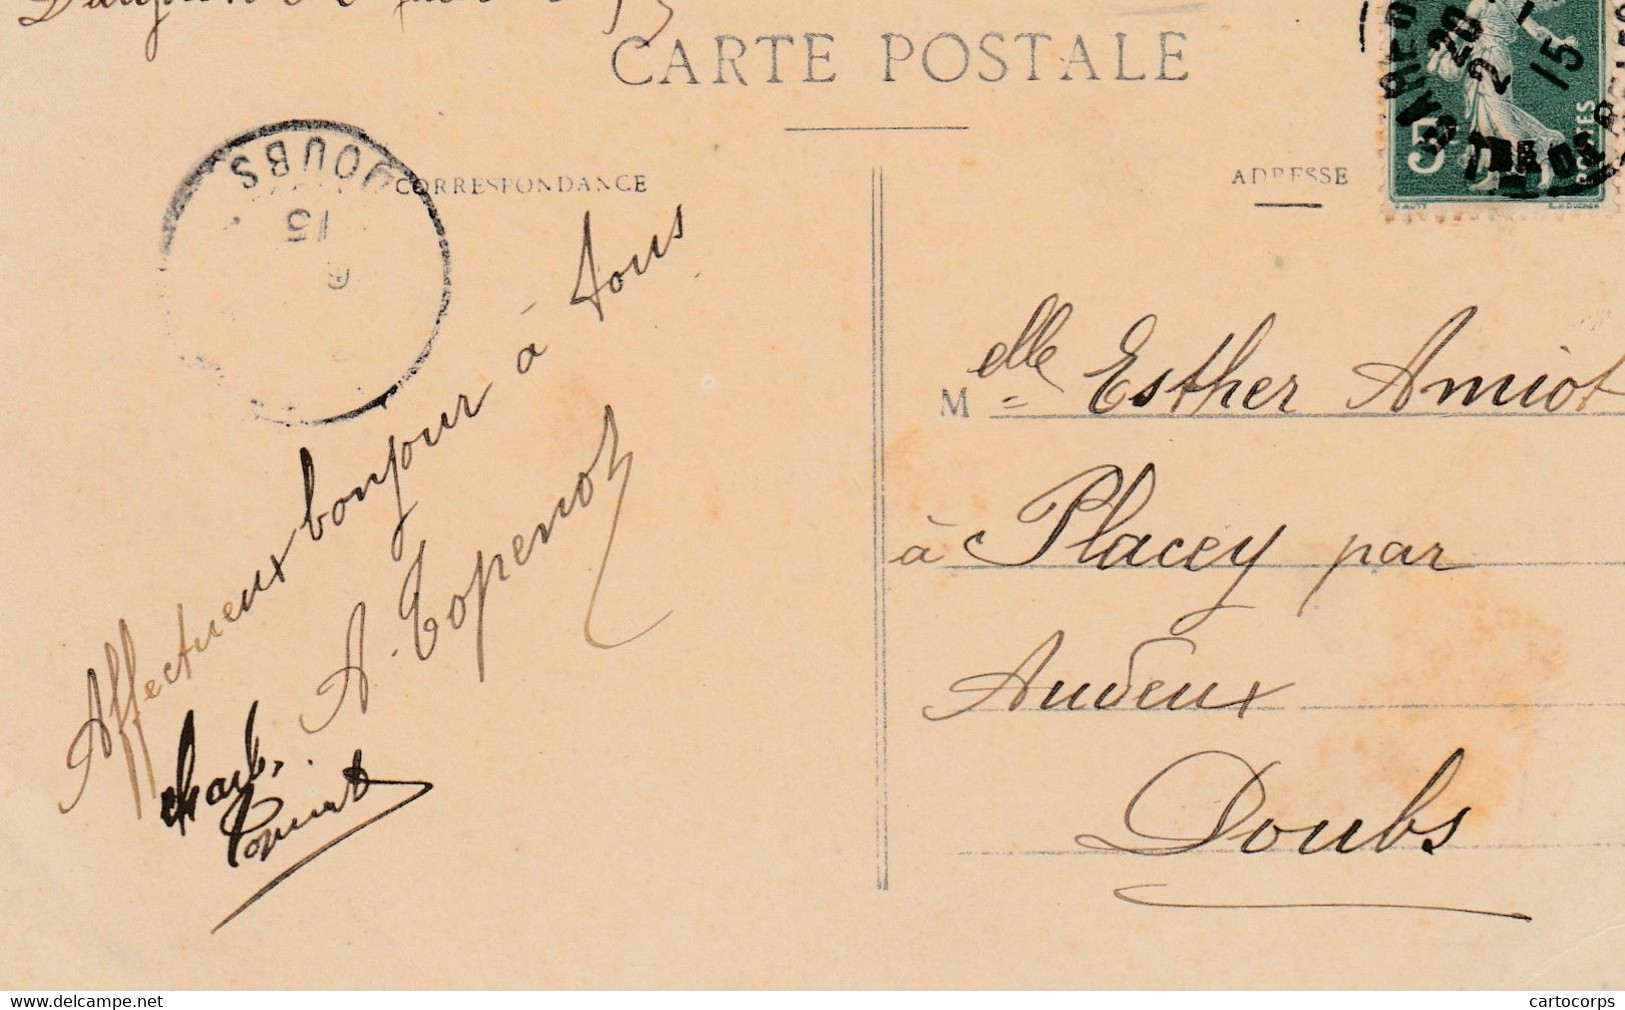 CARTE POSTALE
CORRESPONDANCE
ADRESSE
DOUBS
15
5
20
2
15
Affectueux bonjour à tous
A. Topenot
Melle Esther Amiot
à Placey par
Audeux
Doubs
delcampe.net
cartocorps